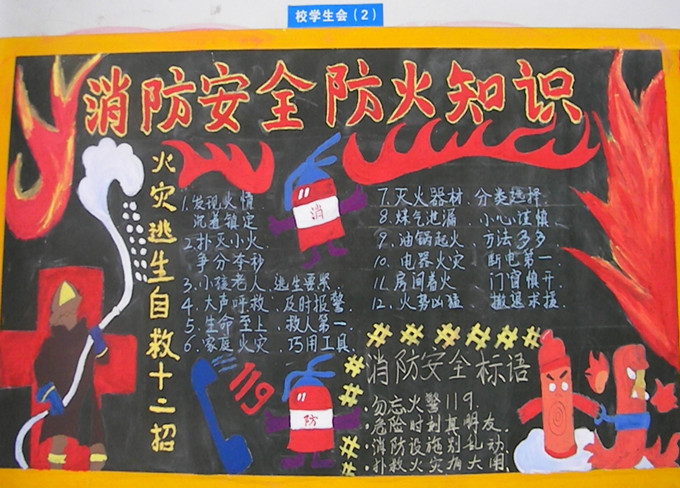 校学生会(2)
消防安全防火知识
火灾逃生自救十二招
1.发现火情
沉着镇定
2.扑灭小火
争分夺秒
3.小孩老人、逃生要紧
4.大声呼救、及时报警
5.生命至上、救人第一
6.家庭火灾、巧用工具
消
7.灭火器材、分类选择
8.煤气泄漏、小心谨慎
9.油锅起火、方法多多
10.电器火灾、断电第一
11.房间着火、门窗慎开
12.火势凶猛、撤退求援
119
防
消防安全标语
·勿忘火警119.
·危险时刻真朋友.
·消防设施别乱动.
·扑救火灾有大用.